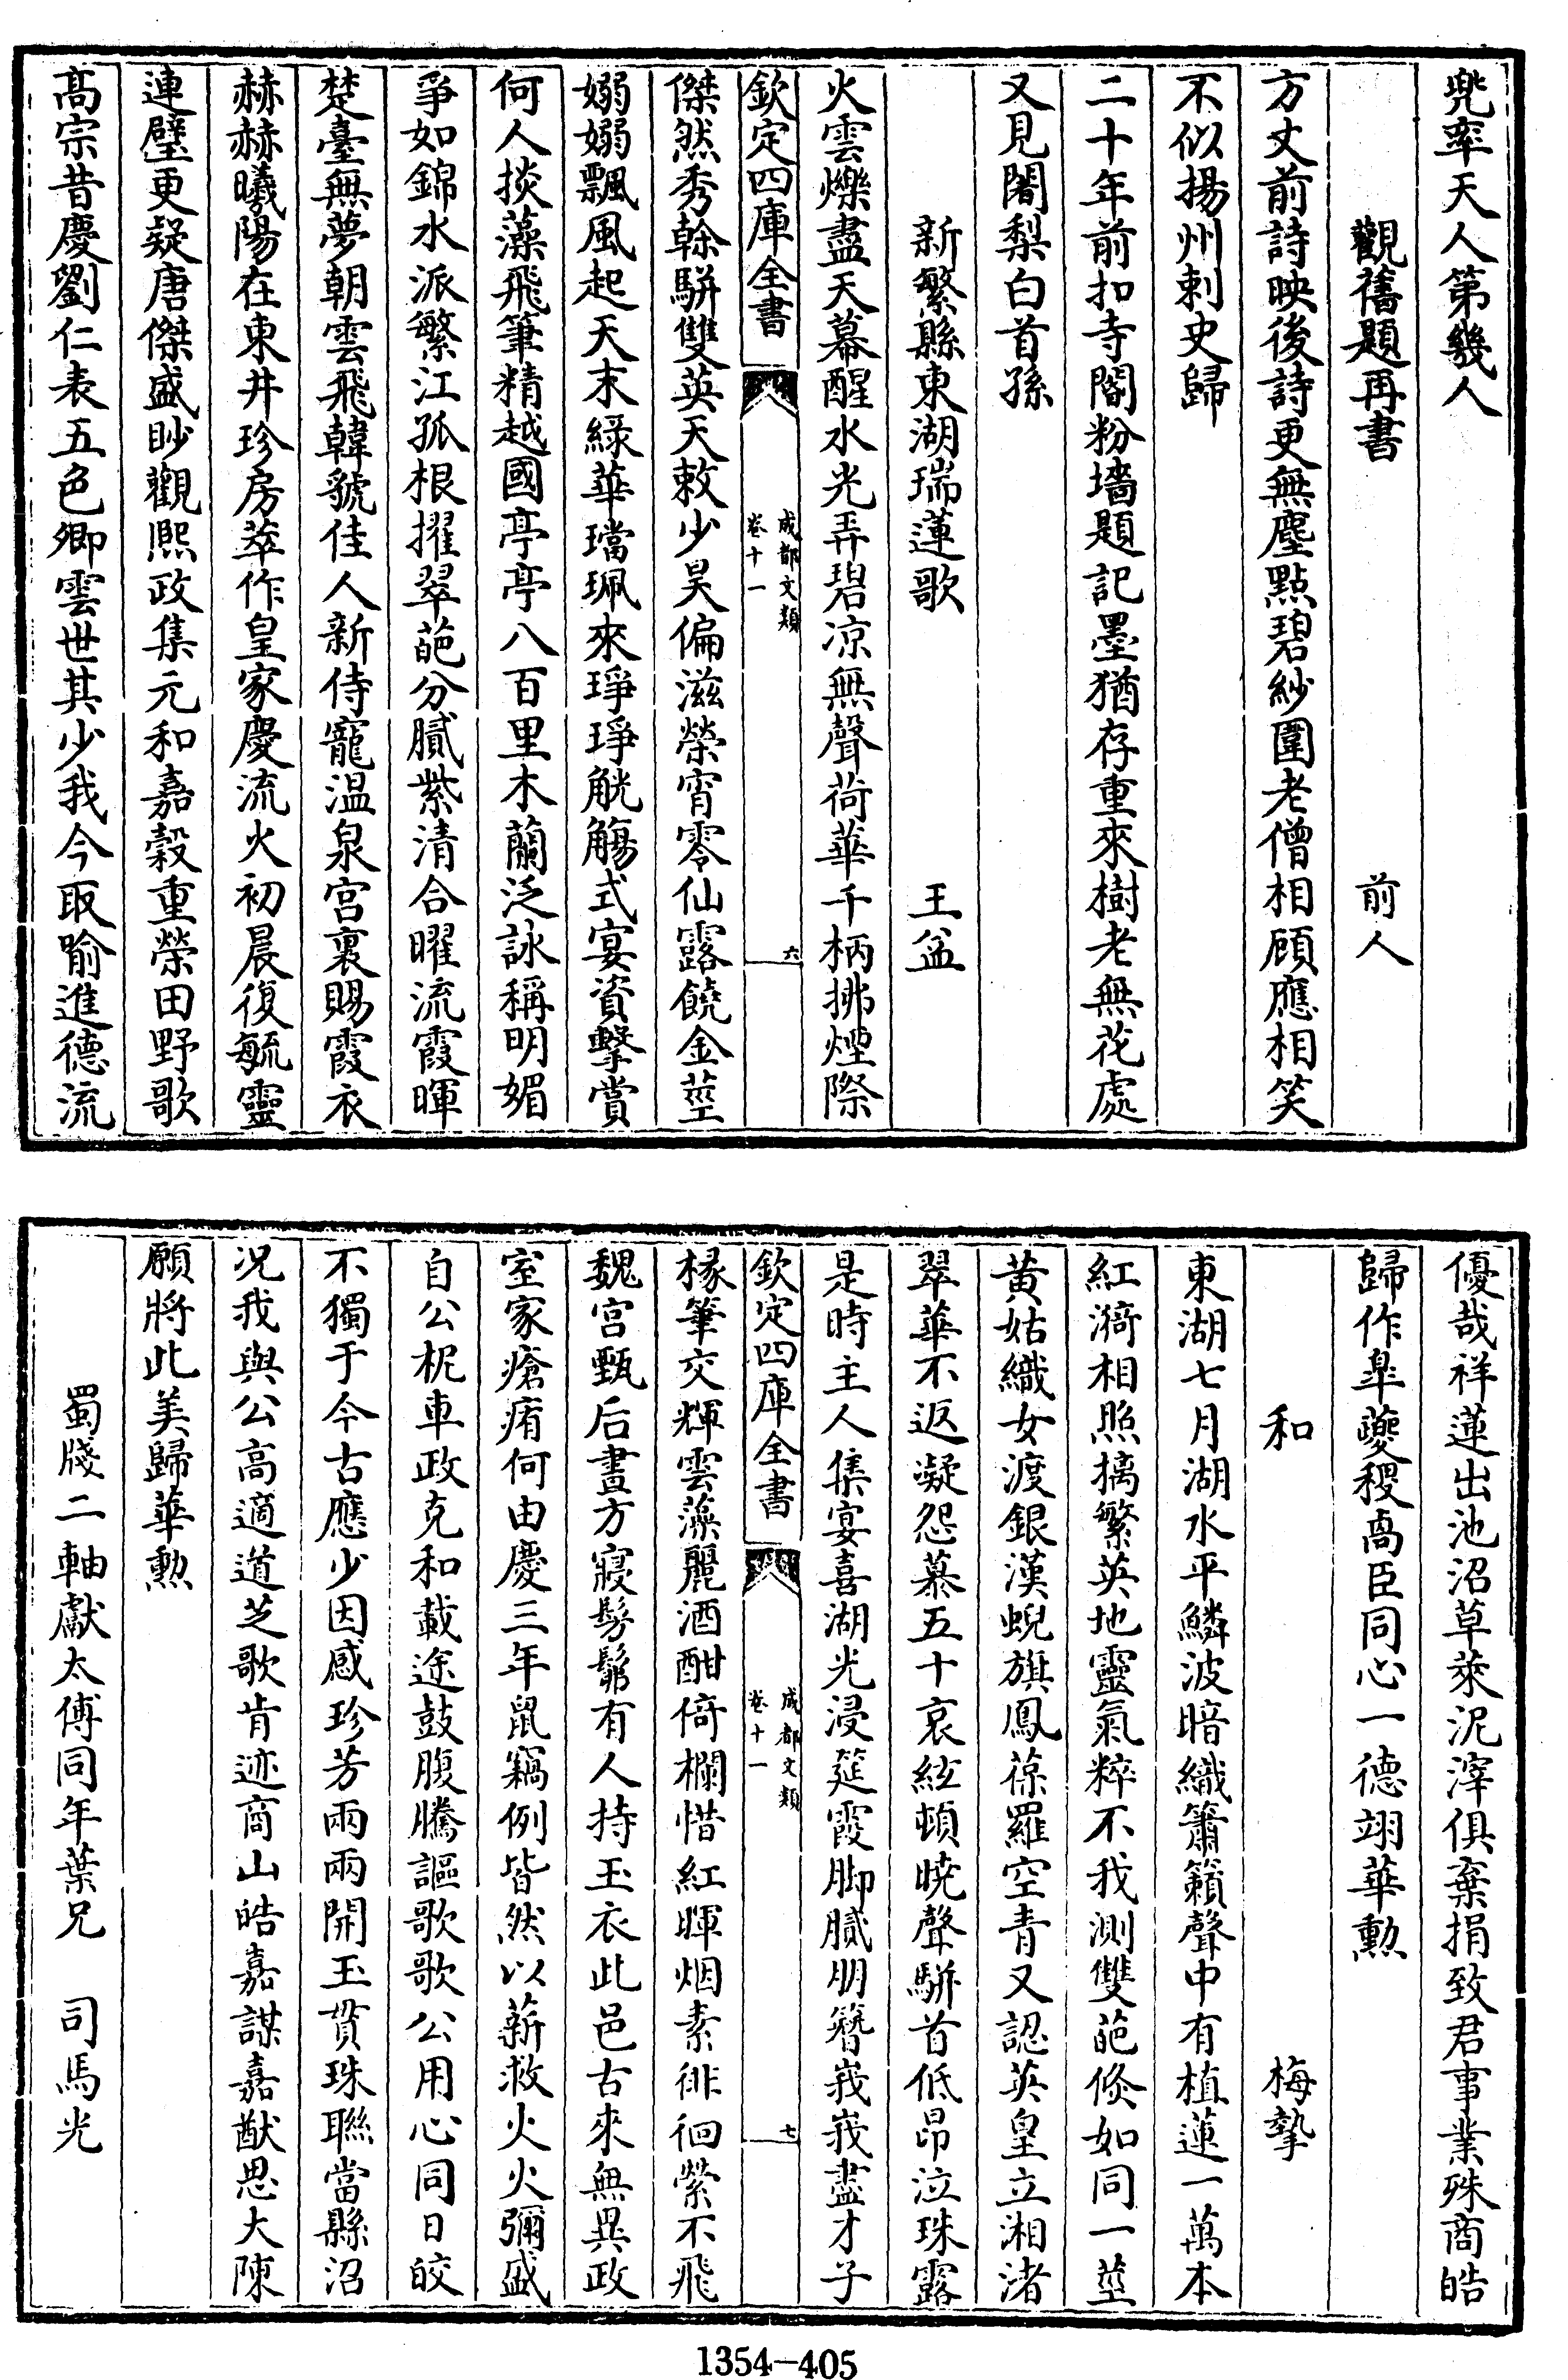 兠率天人第幾人
觀舊題再書 前人
方丈前詩映後詩更無塵點碧紗圍老僧相顧應相笑
不似揚州刺史歸
二十年前扣寺閽粉墻題記墨猶存重來樹老無花處
又見闍梨白首孫
新繁縣東湖瑞蓮歌 王益
火雲爍盡天幕醒水光弄碧凉無聲荷華千柄拂煙際
欽定四庫全書 成都文類 卷十一 六
傑然秀榦駢雙英天敕少昊偏滋榮宵零仙露饒金莖
嫋嫋飄風起天末綠華璫珮來琤琤觥觴式宴資擊賞
何人掞藻飛筆精越國亭亭八百里木蘭泛詠稱明媚
爭如錦水派繁江孤根擢翠葩分膩紫清合曜流霞暉
楚臺無夢朝雲飛韓虢佳人新侍寵温泉宫裏賜霞衣
赫赫曦陽在東井珍房萃作皇家慶流火初晨復毓靈
連璧更疑唐傑盛眇觀熈政集元和嘉榖重榮田野歌
髙宗昔慶劉仁表五色卿雲世其少我今取喻進德流
優哉祥蓮出池沼草萊泥滓俱棄捐致君事業殊商皓
歸作臯夔稷卨臣同心一德翊華勲
和 梅摯
東湖七月湖水平鱗波暗織簫籟聲中有植蓮一萬本
紅漪相照摛繁英地靈氣粹不我測雙葩倐如同一莖
黄姑織女渡銀漢蜺旗鳳葆羅空青又認英皇立湘渚
翠華不返凝怨慕五十哀絃頓曉聲駢首低昂泣珠露
是時主人集宴喜湖光浸筵霞脚膩朋簪峩峩盡才子
欽定四庫全書 成都文類 卷十一 七
椽筆交輝雲藻麗酒酣倚欄惜紅暉烟素徘徊縈不飛
魏宫甄后晝方寢髣髴有人持玉衣此邑古來無異政
室家瘡痏何由慶三年鼠竊例皆然以薪救火火彌盛
自公柅車政克和載途鼓腹騰謳歌歌公用心同日皎
不獨于今古應少因感珍芳兩兩開玉貫珠聯當縣沼
况我與公髙適道芝歌肯迹商山皓嘉謀嘉猷思大陳
願將此美歸華勲
蜀牋二軸獻太傅同年葉兄 司馬光
1354-405